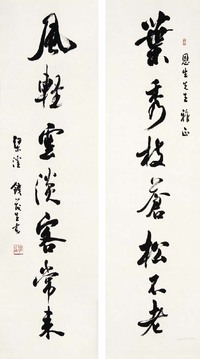 葉秀枝蒼松不老
恩生先生雅正
風輕雲淡客常來
梁溪 錢嵒生書